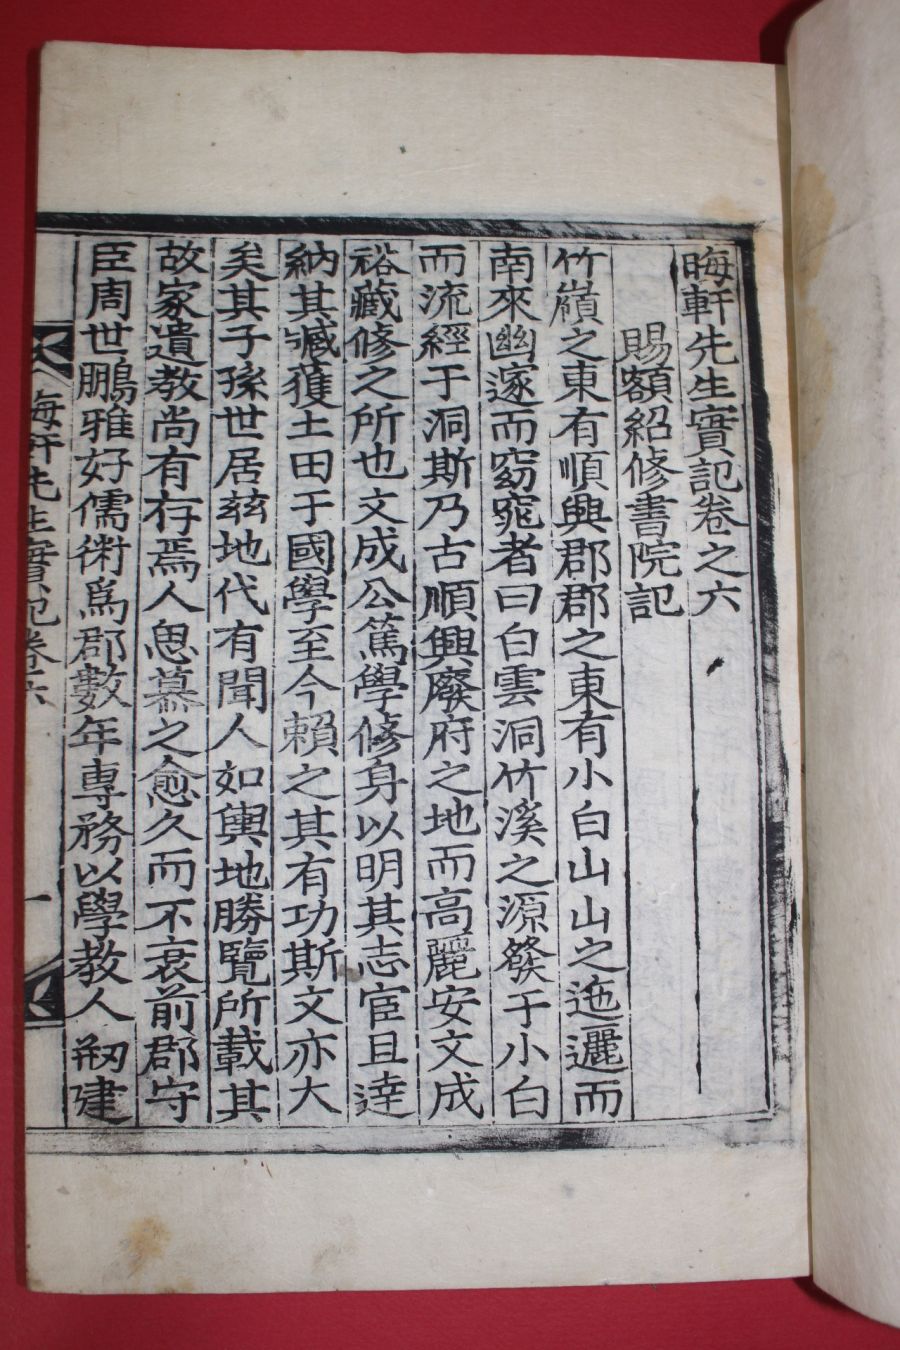 晦軒先生實記卷之六
賜額紹修書院記
竹嶺之東有順興郡郡之東有小白山山之迤邐而
南來幽邃而窈窕者曰白雲洞竹溪之源發于小白
而流經于洞斯乃古順興廢府之地而高麗安文成
裕藏修之所也文成公篤學修身以明其志宦且達
納其臧獲土田于國學至今賴之其有功斯文亦大
矣其子孫世居玆地代有聞人如輿地勝覽所載其
故家遺教尚有存焉人思慕之愈久而不衰前郡守
臣周世鵬雅好儒術爲郡數年專務以學教人刱建
晦軒先生實記卷六 一